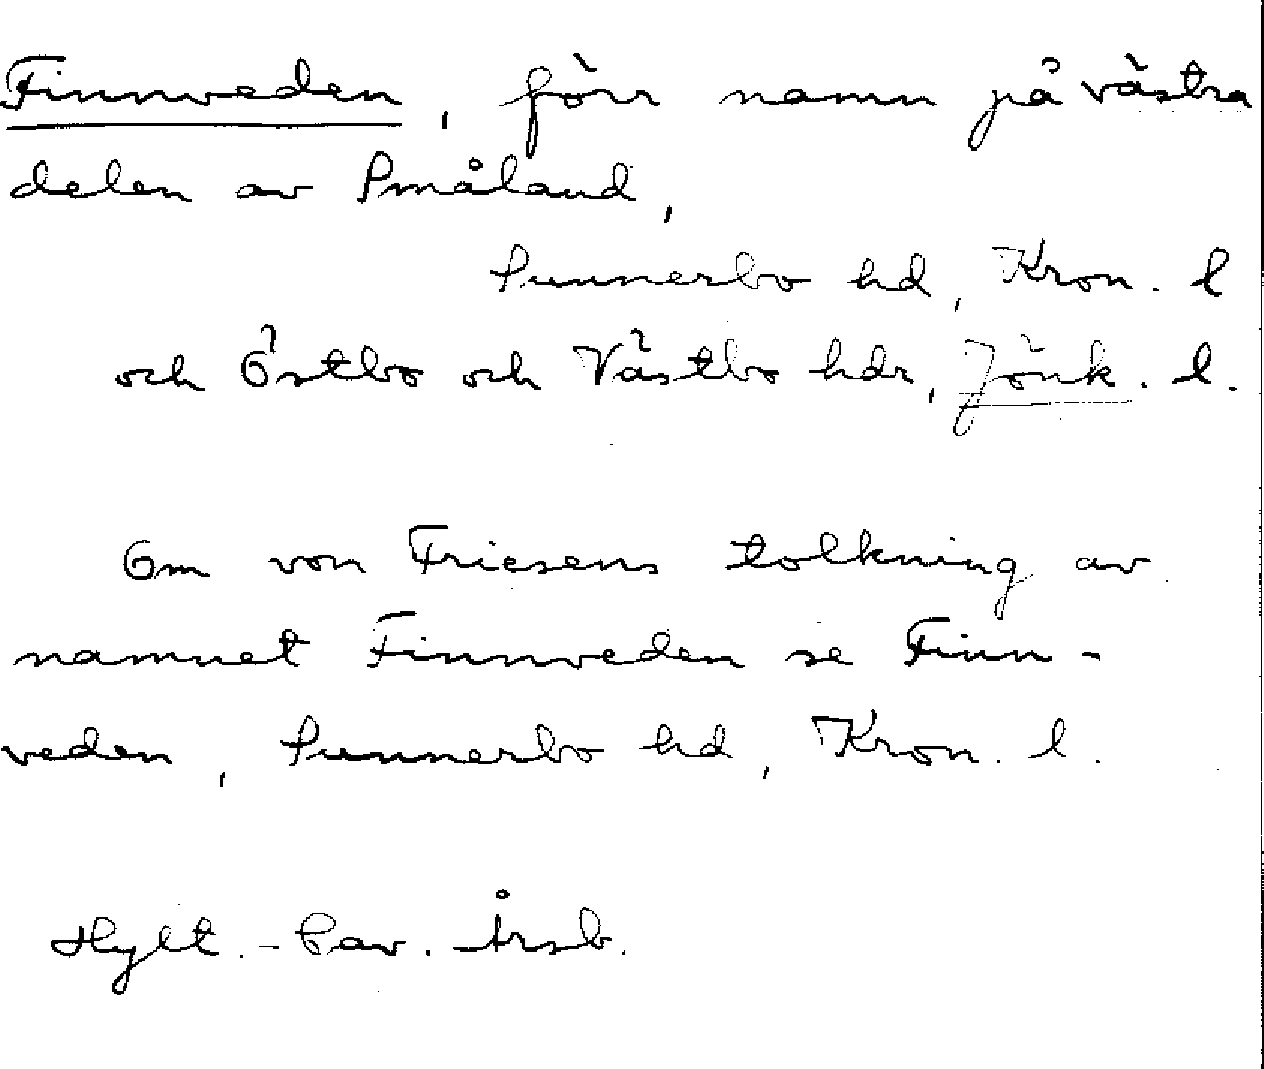 Finnveden, förr namn på västra
delen av Småland,
Sunnerbo hd, Kron. l
och Östbo och Västbo hdr, Jönk. l.
Om von Friesens tolkning av
namnet Finnveden se Finn-
veden, Sunnerbo hd, Kron. l.
Hylt.-Cav. Årsb.